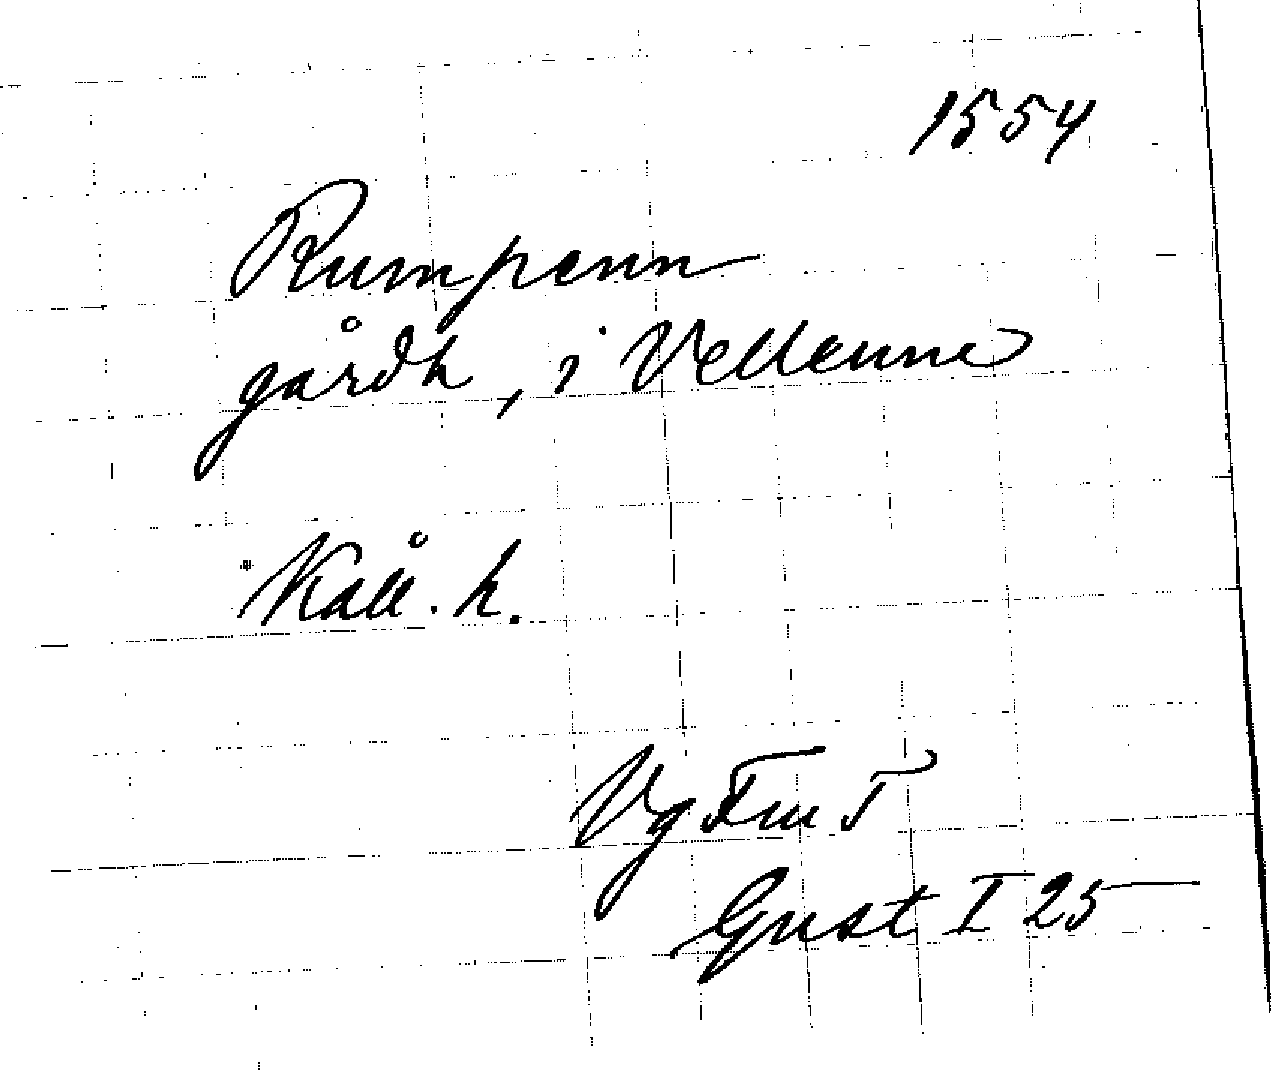 1554
Rumpenn
gårdh, i Vellenne
Kåll. h.
Vg Fru T
Gust I 25